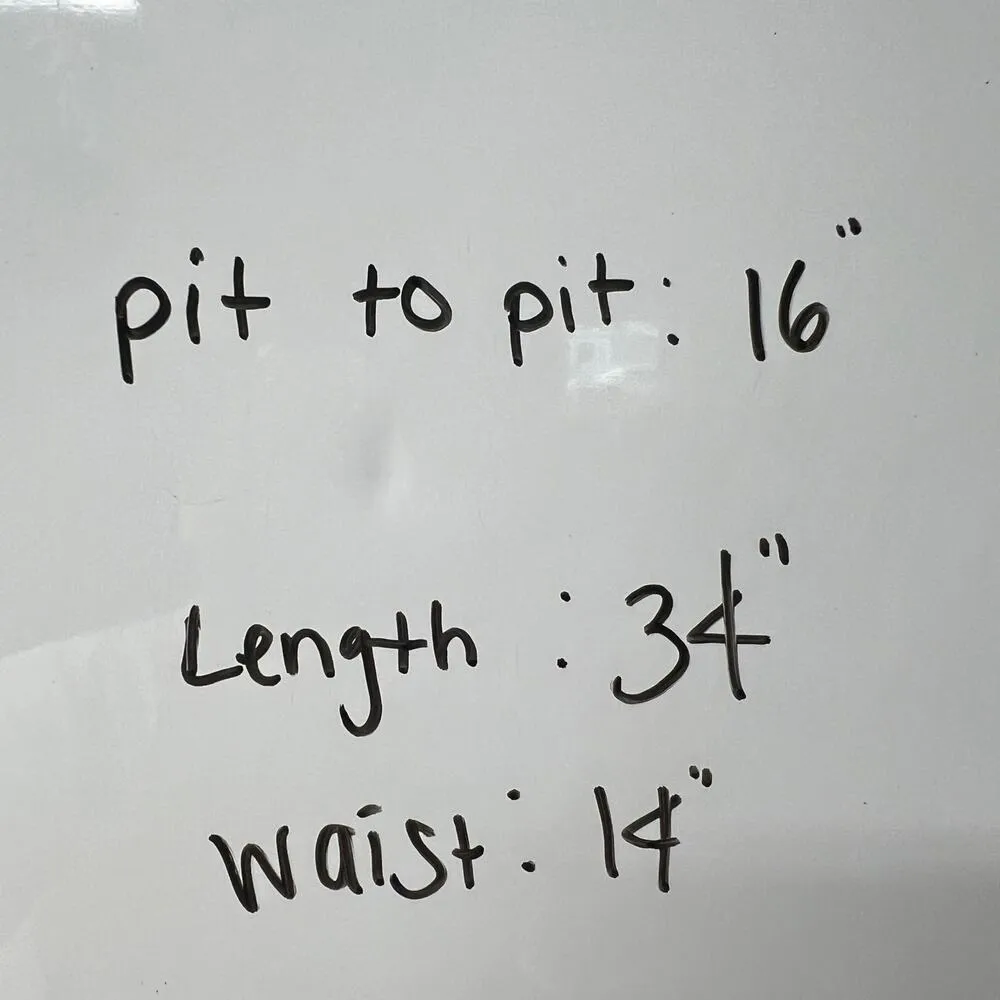 pit to pit: 16"
Length : 34"
Waist: 14"